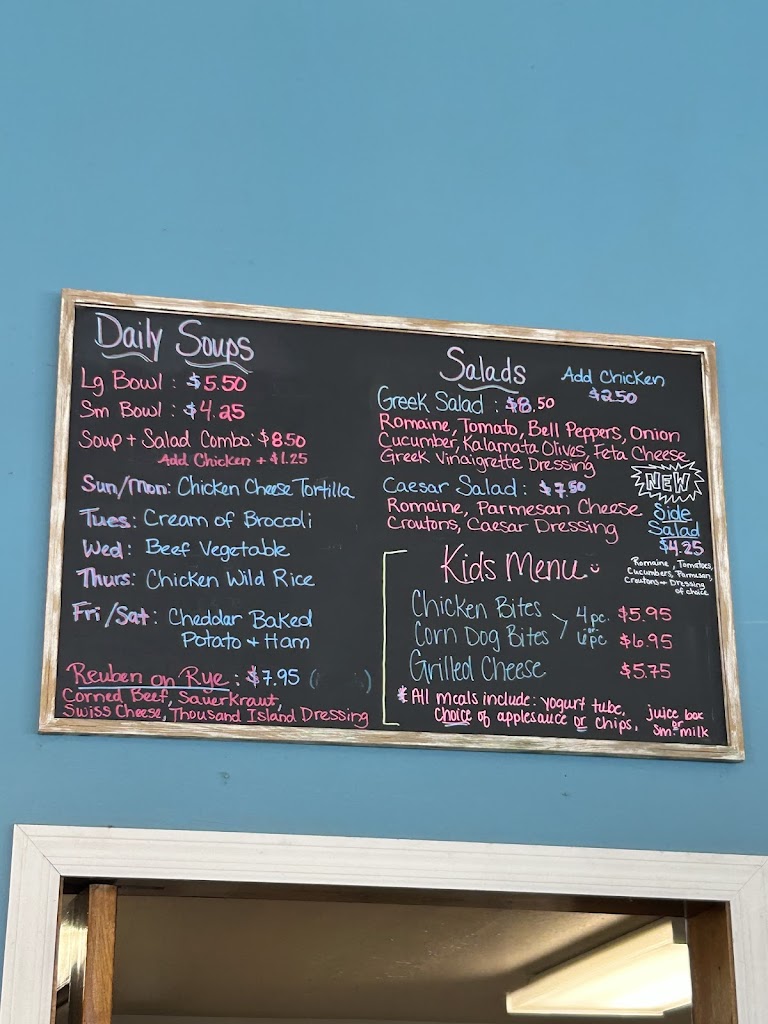 Daily Soups
Lg Bowl : $5.50
Sm Bowl : $4.25
Soup + Salad Combo: $8.50
Add Chicken + $1.25
Sun/Mon: Chicken Cheese Tortilla
Tues: Cream of Broccoli
Wed: Beef Vegetable
Thurs: Chicken Wild Rice
Fri/Sat: Cheddar Baked
Potato + Ham
Reuben on Rye: $7.95 ( )
Corned Beef, Sauerkraut,
Swiss Cheese, Thousand Island Dressing
Salads
Add Chicken
$2.50
Greek Salad : $8.50
Romaine, Tomato, Bell Peppers, Onion
Cucumber, Kalamata Olives, Feta Cheese
Greek Vinaigrette Dressing
Caesar Salad: $7.50
Romaine, Parmesan Cheese
Croutons, Caesar Dressing
NEW
Side
Salad
$4.25
Romaine, Tomatoes,
Cucumbers, Parmesan,
Croutons + Dressing
of choice
Kids Menu
Chicken Bites
Corn Dog Bites
4 pc. $5.95
or
6 pc $6.95
Grilled Cheese $5.75
* All meals include: yogurt tube, juice box
choice of applesauce or chips, or sm. milk